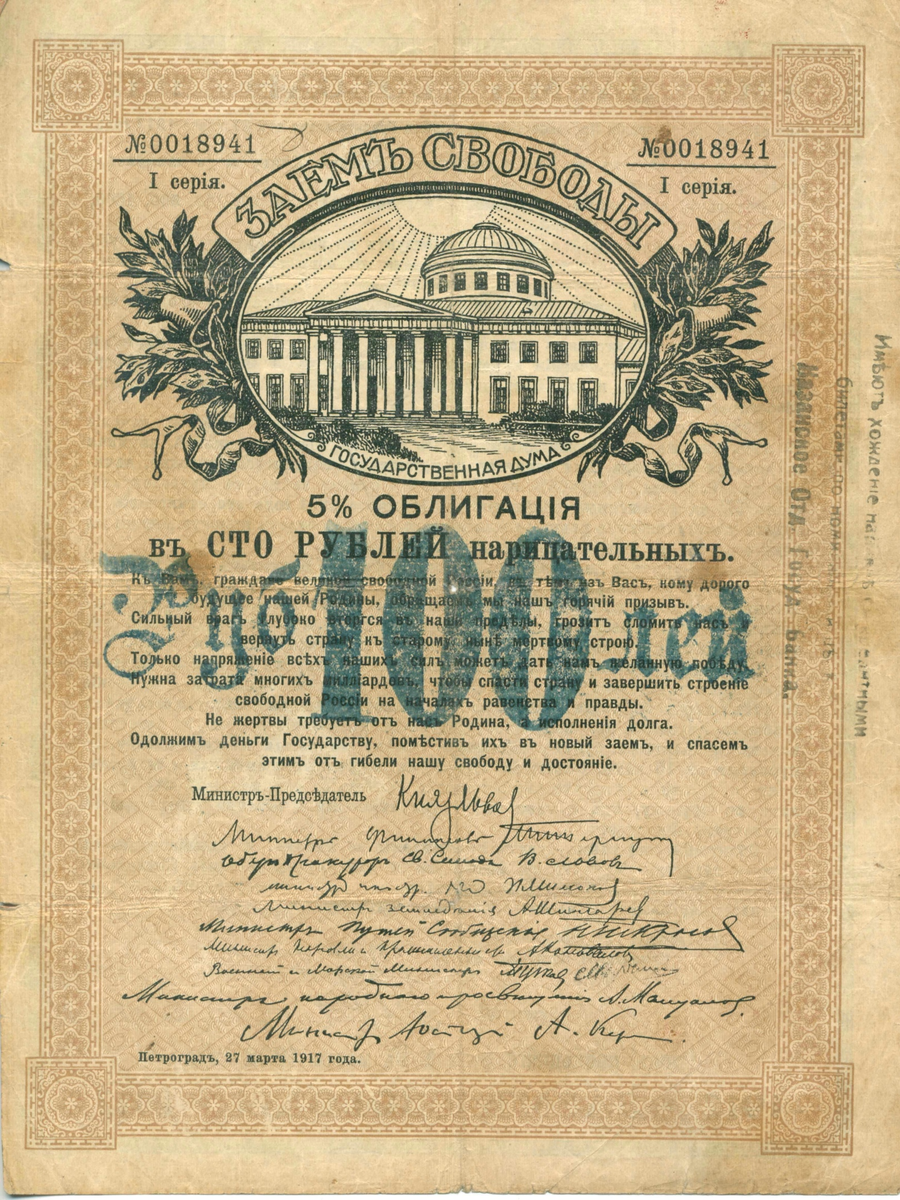 №0018941
№0018941
I серія.
I серія.
ЗАЕМЪ СВОБОДЫ
ГОСУДАРСТВЕННАЯ ДУМА
5% ОБЛИГАЦІЯ
въ СТО РУБЛЕЙ нарицательныхъ.
Къ Вамъ, граждане великой свободной Россіи, къ тѣмъ изъ Васъ, кому дорого
будущее нашей Родины, обращаемъ мы нашъ горячій призывъ.
Сильный врагъ глубоко вторгся въ наши предѣлы, грозитъ сломить насъ и
вернуть страну къ старому, нынѣ мертвому строю.
Только напряженіе всѣхъ нашихъ силъ можетъ дать намъ желанную побѣду.
Нужна затрата многихъ милліардовъ, чтобы спасти страну и завершить строеніе
свободной Россіи на началахъ равенства и правды.
Не жертвы требуетъ отъ насъ Родина, а исполненія долга.
Одолжимъ деньги Государству, помѣстивъ ихъ въ новый заемъ, и спасемъ
этимъ отъ гибели нашу свободу и достояніе.
100
Рублей
Министръ-Предсѣдатель Князь Львов
Министръ Финансовъ
Оберъ Прокуроръ Св. Синода В. Львовъ
Министръ земледѣлія А. Шингаревъ
Министръ Путей Сообщенія Н. Некрасов
Военный и Морской Министръ
Министръ народнаго просвѣщенія А. Мануиловъ
Министр Юстиціи А. Кер
Петроградъ, 27 марта 1917 года.
Имѣютъ хожденіе
Казанское Отд. Госуд. Банка.